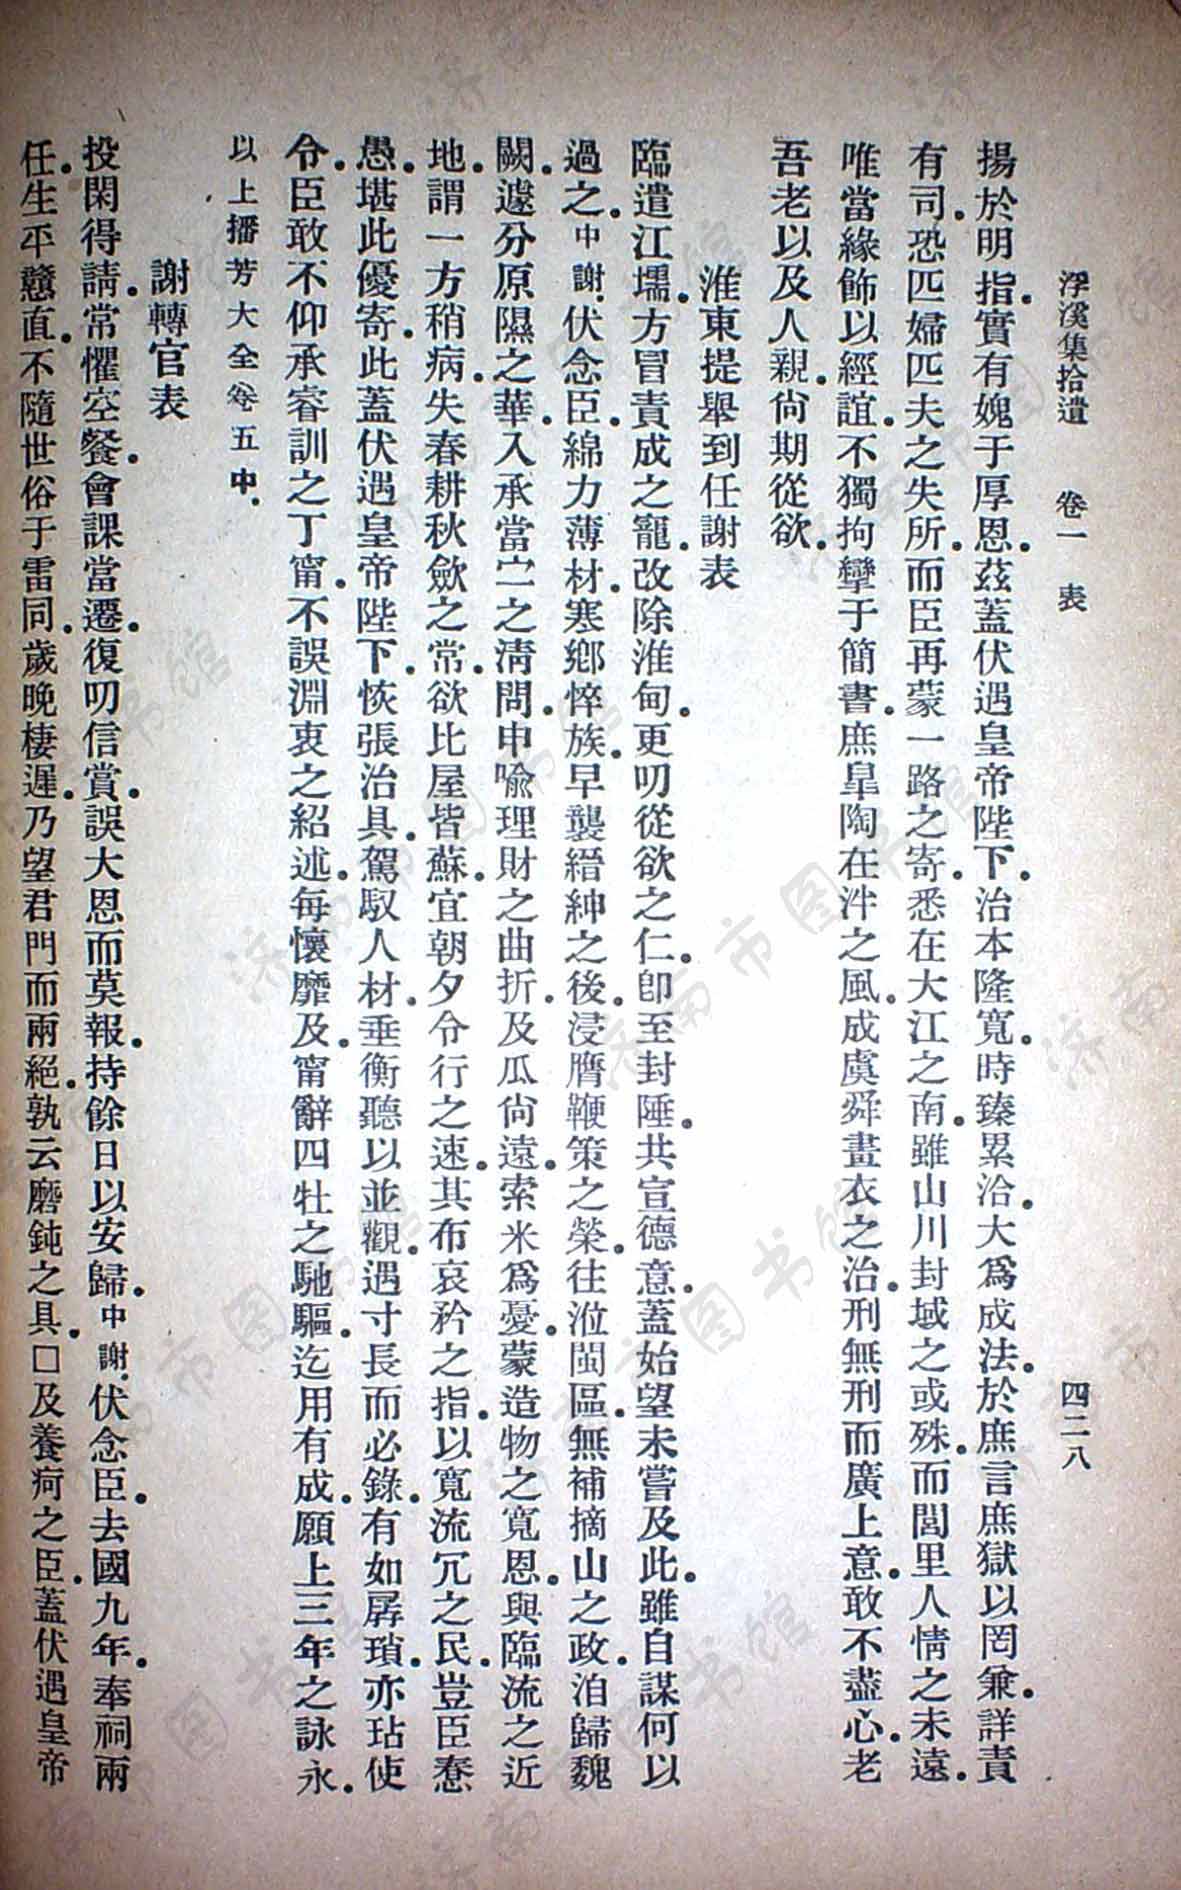 浮溪集拾遺　卷一　表　四二八
揚於明指。實有媿于厚恩。茲蓋伏遇皇帝陛下。治本隆寬。時臻累洽。大爲成法。於庶言庶獄以罔兼。詳責
有司。恐匹婦匹夫之失所。而臣再蒙一路之寄。悉在大江之南。雖山川封域之或殊。而閭里人情之未遠。
唯當緣飾以經誼。不獨拘攣于簡書。庶臯陶在泮之風。成虞舜畫衣之治。刑無刑而廣上意。敢不盡心。老
吾老以及人親。尙期從欲。
淮東提舉到任謝表
臨遣江壖。方冒責成之寵。改除淮甸。更叨從欲之仁。卽至封陲。共宣德意。蓋始望未嘗及此。雖自謀何以
過之。中謝。伏念臣。綿力薄材。寒鄉悴族。早襲縉紳之後。浸膺鞭策之榮。往涖閩區。無補摘山之政。洎歸魏
闕。遽分原隰之華。入承當宁之淸問。申喩理財之曲折。及瓜尙遠。索米爲憂。蒙造物之寬恩。與臨流之近
地。謂一方稍病。失春耕秋斂之常。欲比屋皆蘇。宜朝夕令行之速。其布哀矜之指。以寬流冗之民。豈臣惷
愚。堪此優寄。此蓋伏遇皇帝陛下。恢張治具。駕馭人材。垂衡聽以並觀。遇寸長而必錄。有如孱瑣。亦玷使
令。臣敢不仰承睿訓之丁甯。不誤淵衷之紹述。每懷靡及。甯辭四牡之馳驅。迄用有成。願上三年之詠永。
以上播芳大全卷五中。
謝轉官表
投閑得請。常懼空餐。會課當遷。復叨信賞。誤大恩而莫報。持餘日以安歸。中謝。伏念臣。去國九年。奉祠兩
任。生平戇直。不隨世俗于雷同。歲晚棲遲。乃望君門而兩絕。孰云磨鈍之具。□及養疴之臣。蓋伏遇皇帝
济南市图书馆